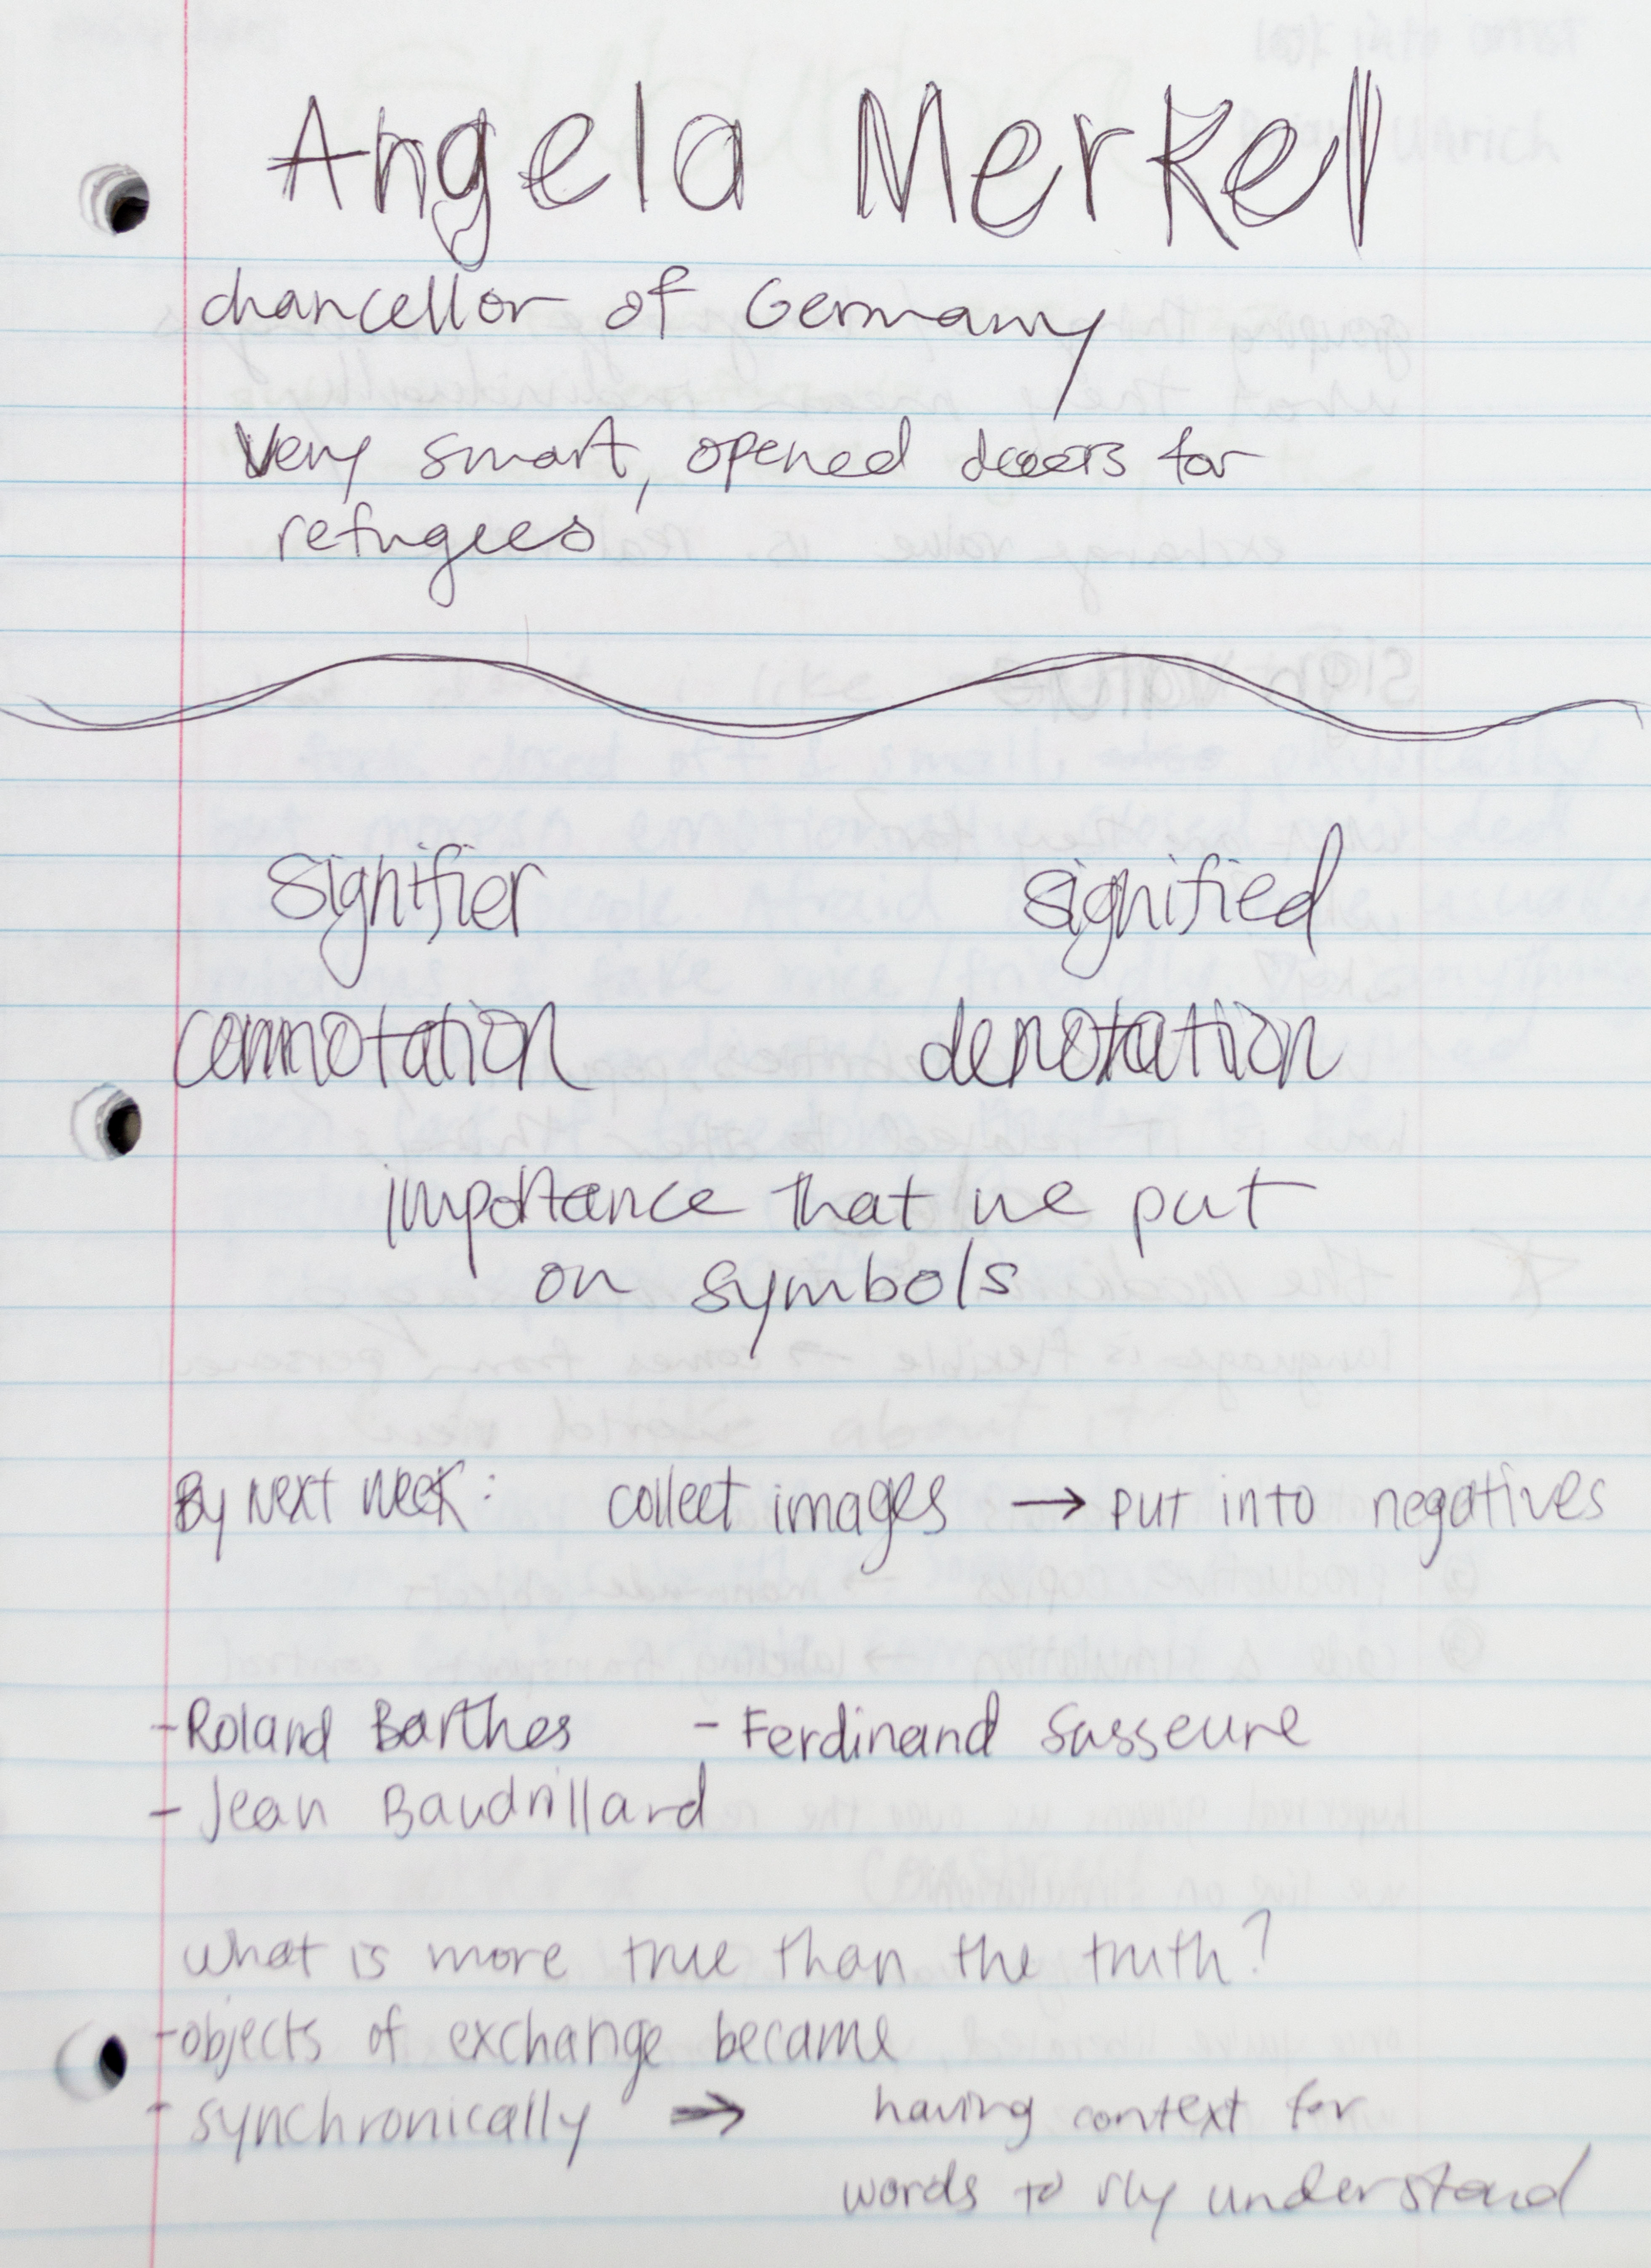 Angela Merkel
chancellor of Germany
Very smart, opened doors for
refugees
signifier signified
connotation denotation
importance that we put
on symbols
By next week: collect images → put into negatives
- Roland Barthes - Ferdinand Susseure
- Jean Baudrillard
what is more true than the truth?
- objects of exchange became
- synchronically → having context for
words to rly understand